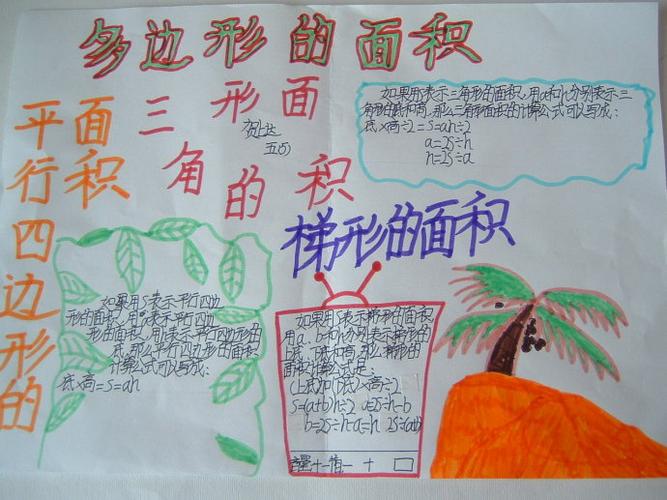 多边形的面积
平行四边形的
面积
三角形的面积
五(5)
如果用S表示三角形的面积,用a和h分别表示三
角形的底和高,那么三角形面积的计算公式可以写成:
底×高÷2=S=ah÷2
a=2S÷h
h=2S÷a
梯形的面积
如果用S表示平行四边
形的面积,用a表示平行四边
形的底,用h表示平行四边形的
高,那么平行四边形的面积
计算公式可以写成:
底×高=S=ah
如果用S表示梯形的面积,
用a、b和h分别表示梯形的
上底、下底和高,那么梯形的
面积计算公式是:
(上底加下底)×高÷2
S=(a+b)h÷2 a=2S÷h-b
b=2S÷h-a=h 2S÷(a+b)
音量+-